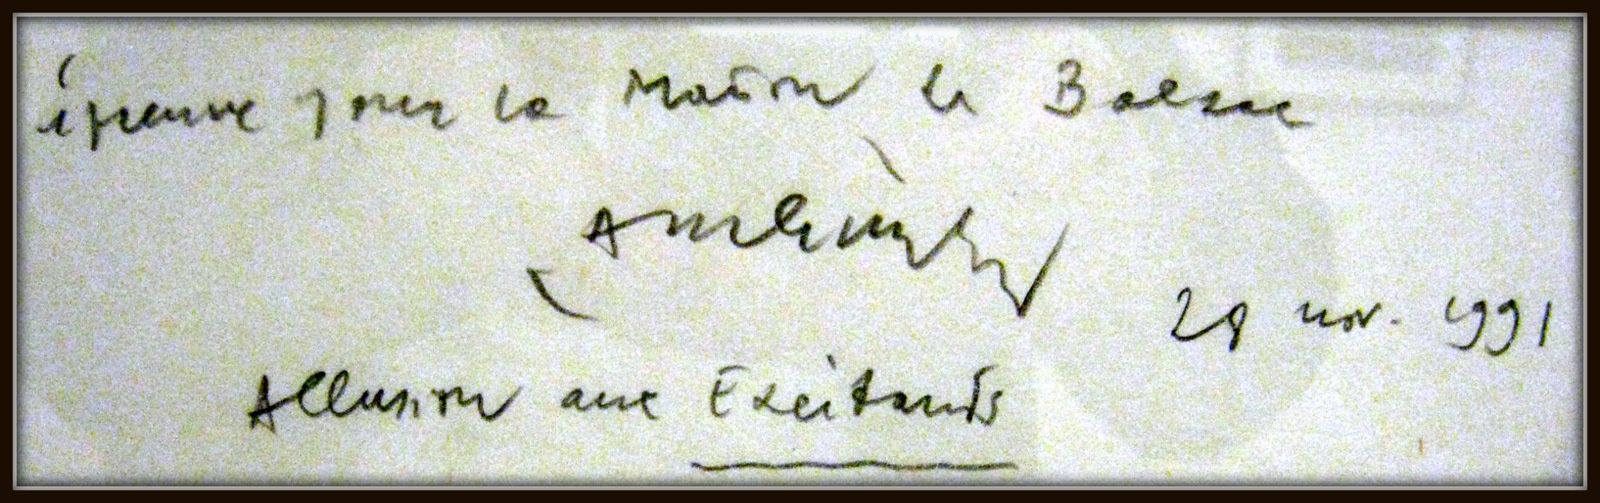 épreuve pour la Maison de Balzac
28 nov. 1991
Allusion aux Excitants